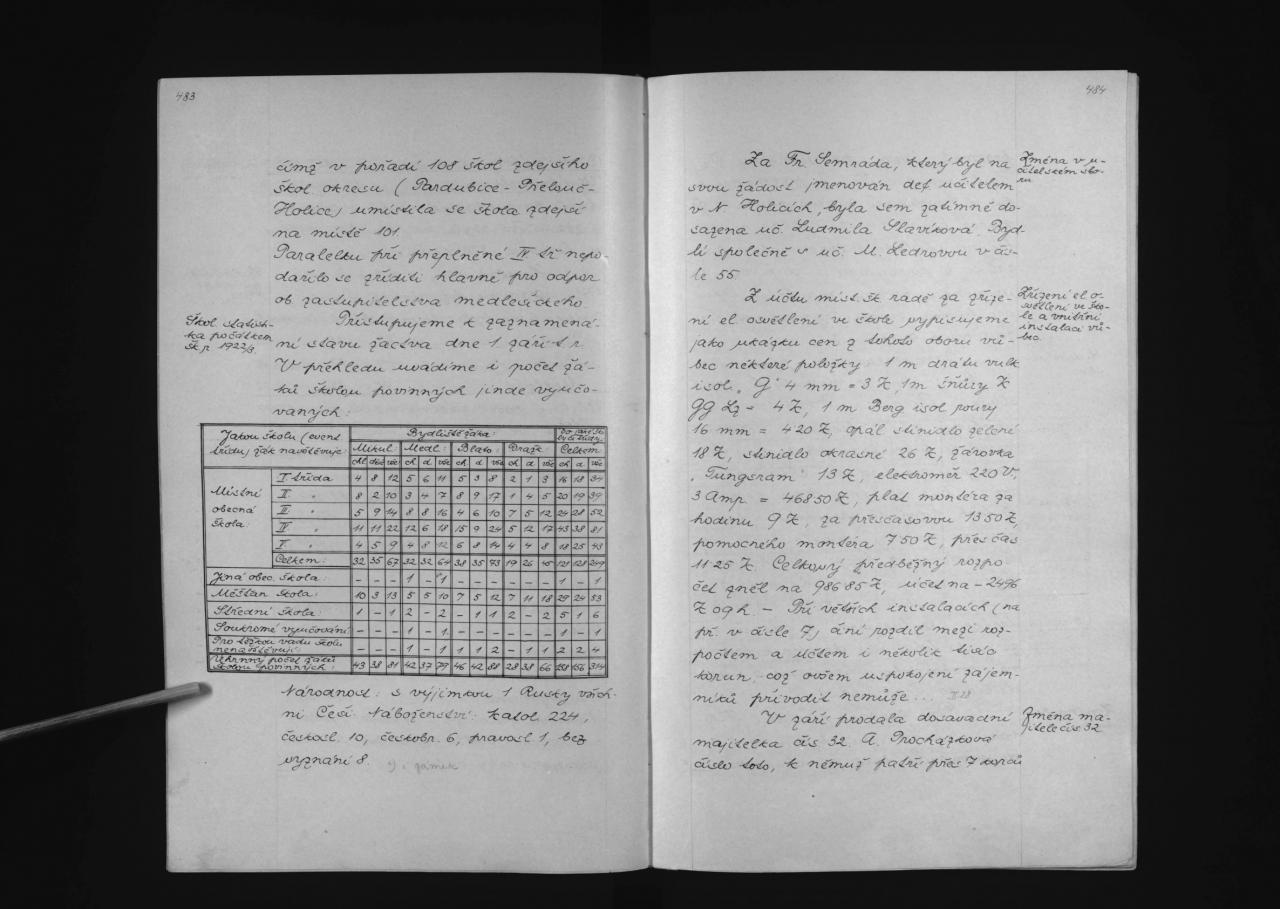 483
čímž v pořadí 108 škol zdejšího
škol okresu (Pardubice - Přelouč-
Holice) umístila se škola zdejší
na místě 101.
Paralelku při přeplněné IV. tř nepo-
dařilo se zříditi hlavně pro odpor
ob zastupitelstva medlešického
Škol. statisti-
ka počátkem
šk. r. 1922/3
Přistupujeme k zaznamená-
ní stavu žactva dne 1 září t r.
V přehledu uvádíme i počet žá-
ků školou povinných jinde vyučo-
vaných:
Jakou školu (event třídu) žák navštěvuje: Bydliště žáka:
Mikul. Medl. Blato. Draž. Celkem
ch d vše ch d vše ch d vše ch d vše ch d vše
Místní obecná škola:
I třída 4 8 12 5 6 11 5 3 8 2 1 3 16 18 34
II. " 8 2 10 3 4 7 8 9 17 1 4 5 20 19 39
III " 5 9 14 8 8 16 4 6 10 7 5 12 24 28 52
IV " 11 11 22 12 6 18 15 9 24 5 12 17 43 38 81
V. " 4 5 9 4 8 12 6 8 14 4 4 8 18 25 43
Celkem: 32 35 67 32 32 64 38 35 73 19 26 45 121 128 249
Jiná obec. škola: - - - 1 - 1 - - - - - - 1 - 1
Měšťan škola: 10 3 13 5 5 10 7 5 12 7 11 18 29 24 53
Střední škola: 1 - 1 2 - 2 - 1 1 2 - 2 5 1 6
Soukromé vyučování: - - - 1 - 1 - - - - - - 1 - 1
Pro těžkou vadu školu nenavštěvují: - - - 1 - 1 1 1 2 - 1 1 2 2 4
Úhrnný počet žáků školou povinných: 43 38 81 42 37 79 46 42 88 28 38 66 158 156 314
Národnost: s výjimkou 1 Rusky všich-
ni Češi. Náboženství: katol. 224,
českosl. 10, českobr. 6, pravosl 1, bez
vyznání 8.
484
Za Fr. Semráda, který byl na
svou žádost jmenován def učitelem
v N. Holicích, byla sem zatímně do-
sazena uč. Ludmila Slavíková. Byd-
lí společně s uč. M. Ledrovou v čís-
le 55.
Změna v u-
čitelském sbo-
ru
Z účtu míst. šk radě za zříze-
ní el. osvětlení ve škole vypisujeme
jako ukázku cen z tohoto oboru vů-
bec některé položky: 1 m drátu vulk
isol. G 4 mm = 3 K, 1 m šňůry K
GG Lz = 4 K, 1 m Berg isol roury
16 mm = 4 20 K, opál stínidlo zelené
18 K, stínidlo okrasné 26 K, žárovka
"Tungsram" 13 K, elektroměr 220 V,
3 Amp. = 468 50 K, plat montéra za
hodinu 9 K, za přesčasovou 13 50 K,
pomocného montéra 7 50 K, přes čas
11 25 K. Celkový předběžný rozpo-
čet zněl na 986 85 K, účet na - 2496
K 09 h. - Při větších instalacích (na
př. v čísle 7) činí rozdíl mezi roz-
počtem a účtem i několik tisíc
korun, což ovšem uspokojení zájem-
níků přivodit nemůže...
Zřízení el. o-
světlení ve ško-
le a vnitřní
instalací vů-
bec
V září prodala dosavadní
majitelka čís. 32. A. Procházková
číslo toto, k němuž patří přes 7 korců
Změna ma-
jitele čís. 32